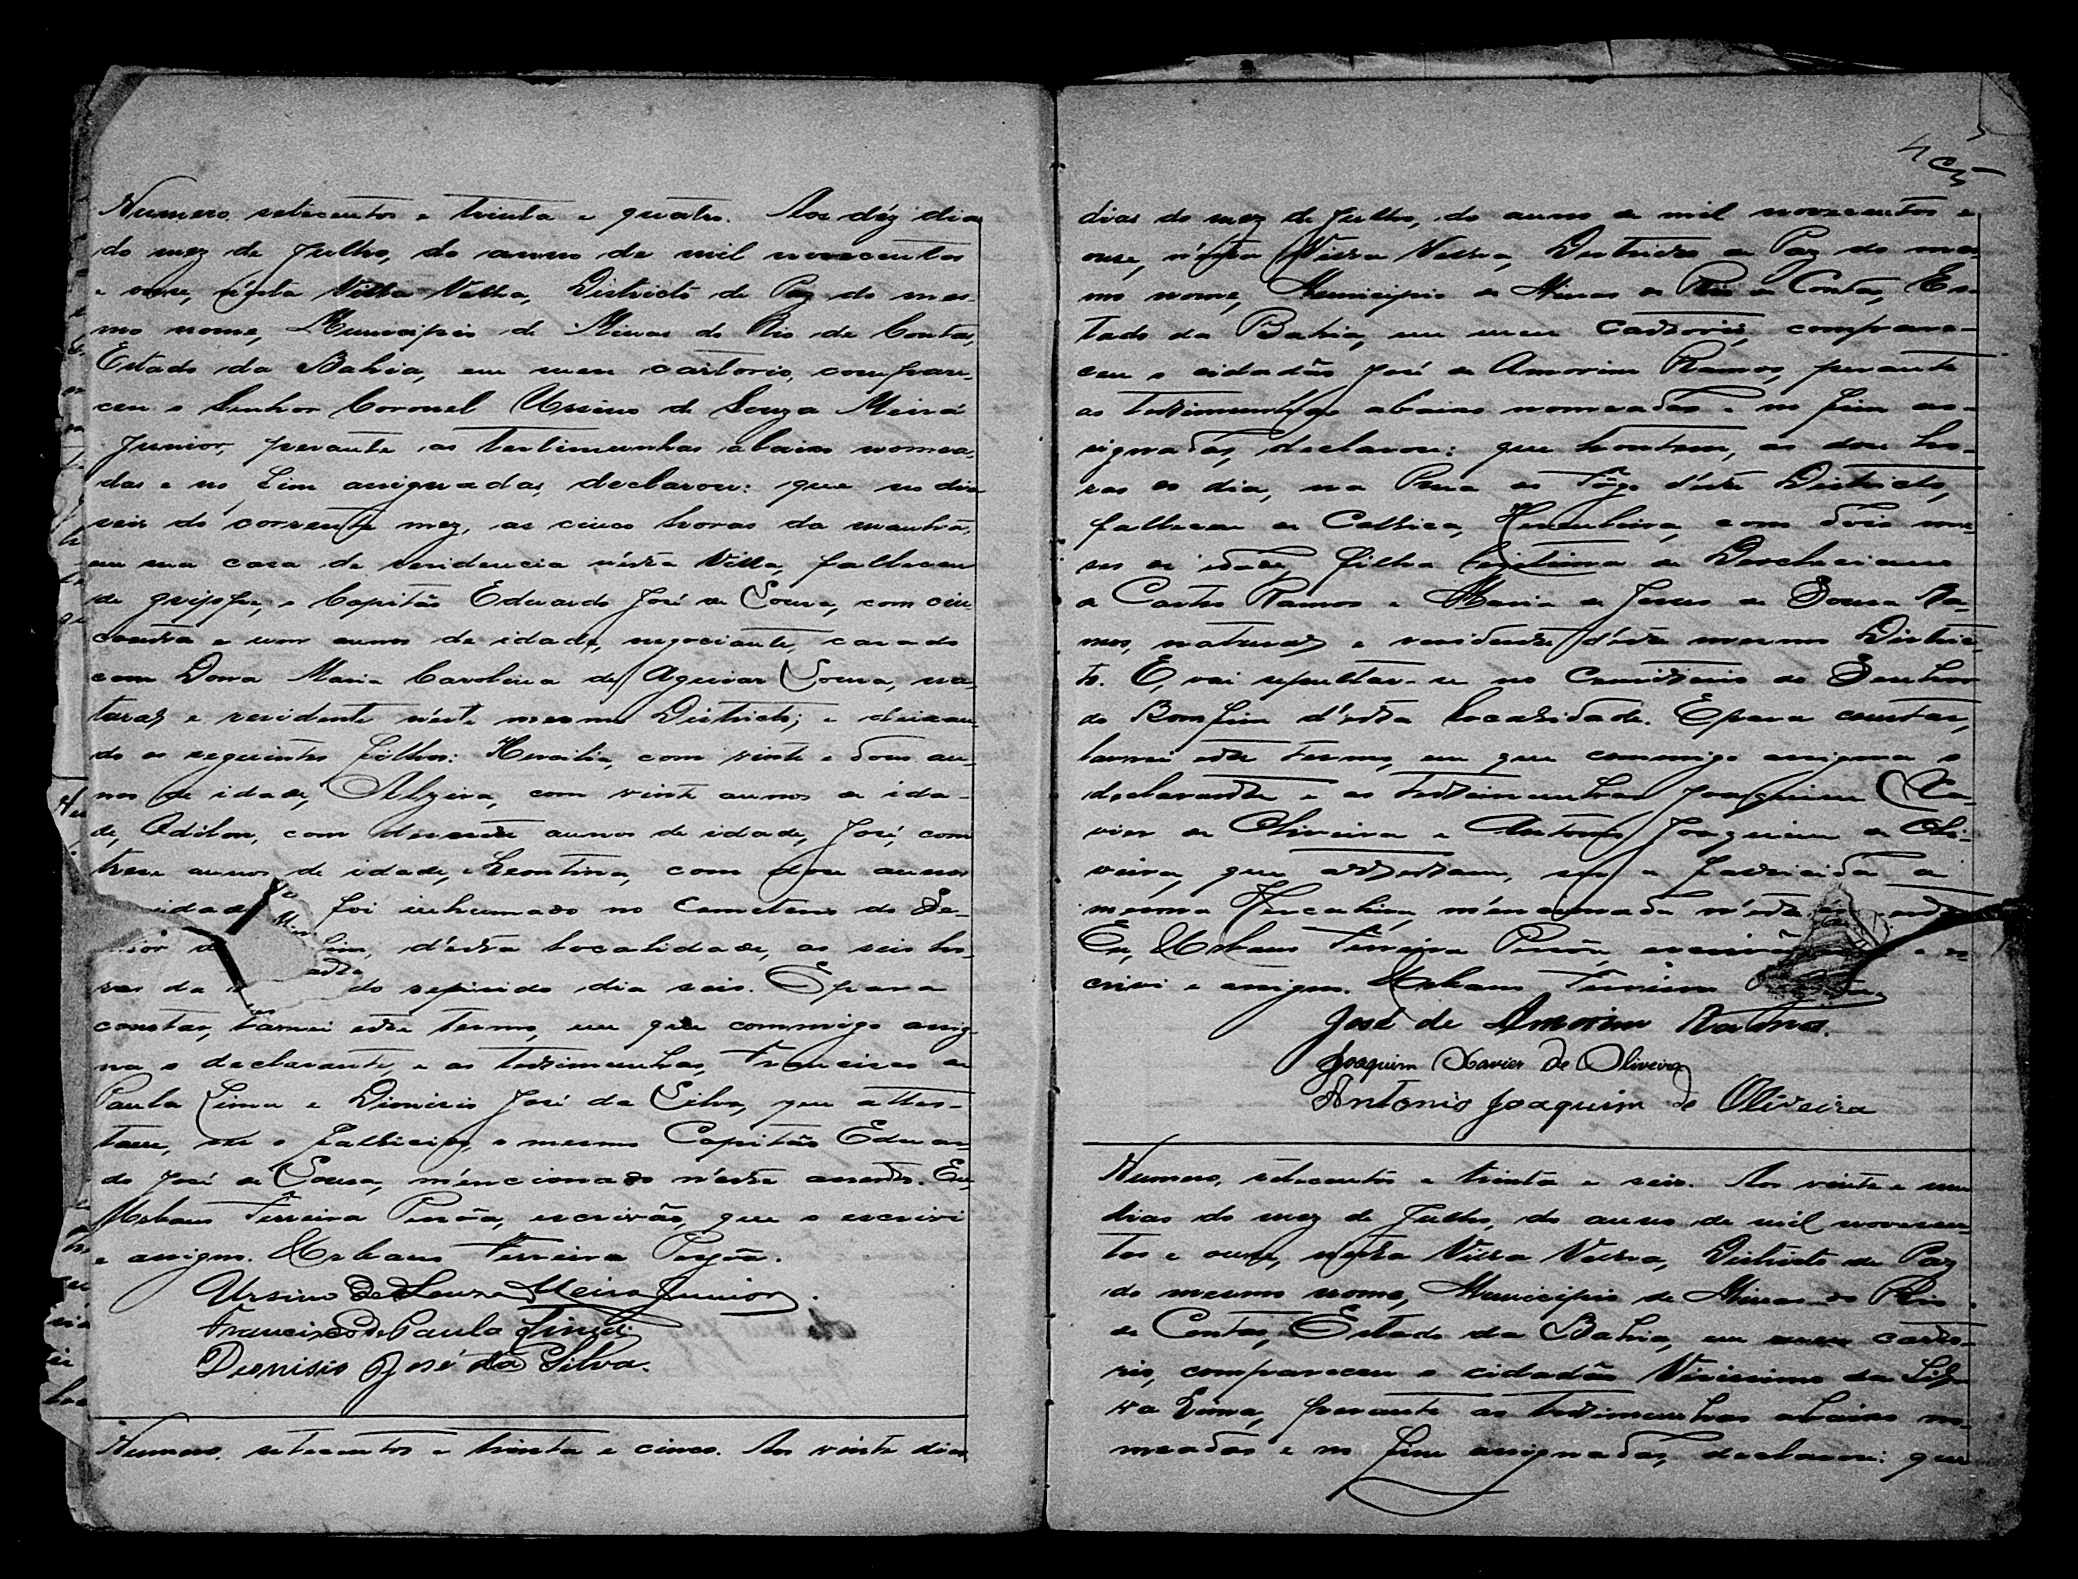 Numero setecentos e trinta e quatro. Aos déz dias
do mez de Julho, do anno de mil novecentos
e onse, nésta Villa Velha, Districto de Paz do mes-
mo nome, Municipio de Minas do Rio de Contas,
Estado da Bahia, em meu cartorio, compare-
ceu o Senhor Coronel Ursino de Souza Meira
Junior, perante as testimunhas abaixo nomea-
das e no fim assignadas, declarou: que no dia
seis do corrente mez, as cinco horas da manhã,
em sua casa de residencia nésta Villa, falleceu
de grippe, o Capitão Eduardo José de Sousa, com cin
coenta e um annos de idade, negociante, casado
com Dona Maria Carolina de Aguiar Sousa, na-
tural e residente néste mesmo Districto; e deixan-
do os seguintes filhos: Hercilia, com vinte e dous an-
nos de idade, Alzira, com vinte annos de ida-
de, Odilon, com annos de idade, José, com
treze annos de idade, Leontina, com doze annos
idade foi inhumado no Cemeterio do Se-
nhor d fim, d'esta localidade, as seis ho-
ras da do referido dia seis. E para
constar, lavrei este termo, em que commigo assig-
na o declarante, e as testimunhas, Francisco de
Paula Lima e Dionisio José da Silva, que attes-
tam, ser o fallecido, o mesmo Capitão Eduar-
do José de Sousa, méncionado n'este assento. Eu,
Urbano Ferreira Pessôa, escrivão, que o escrivi
e assigno. Urbano Ferreira Pessôa.
Ursino de Souza Meira Junior.
Francisco de Paula Lima
Dionisio José da Silva.
Numero, setecentos e trinta e cinco. Aos vinte dias
dias do mez de Julho, do anno de mil novecentos e
onse, nésta Villa Velha, Districto de Paz do mes-
mo nome, Municipio de Minas do Rio de Contas, Es-
tado da Bahia, em meu cartorio, compare-
ceu o cidadão José de Amorim Ramos, perante
as testimunhas abaixo nomeadas e no fim as-
signadas, declarou: que hontem, as doze ho-
ras do dia, na do d'éste Districto,
falleceu de Collica, Herculina, com dois me-
ses de idade, filha legitima de Deocleciano
de Castro Ramos e Maria de Jesus de Sousa Ra-
mos, natural e residente d'éste mesmo Distric-
to. E, vai sepultar-se no Cemiterio do Senhor
do Bomfim d'ésta localidade. E para constar,
lavrei este termo, em que commigo assigna o
declarante e as testimunhas Joaquim Xa-
vier de Oliveira e Antonio Joaquim de Oli-
veira, que attestam, ser a fallecida a
mesma Herculina, méncionada n'este
Eu, Urbano Ferreira Pessôa, escrivão e es-
crivi e assigno. Urbano Ferreira
José de Amorim Ramos.
Joaquim Xavier de Oliveira
Antonio Joaquim de Oliveira
Numero, setecentos e trinta e seis. Aos vinte e um
dias do mez de Julho, do anno de mil novecen-
tos e onze, nésta Villa Velha, Districto de Paz
do mesmo nome, Municipio de Minas do Rio
de Contas, Estado da Bahia, em meu carto-
rio, compareceu o cidadão Virissimo da Sil-
va Lima, perante as testimunhas abaixo no-
meadas e no fim assignadas, declarou: que